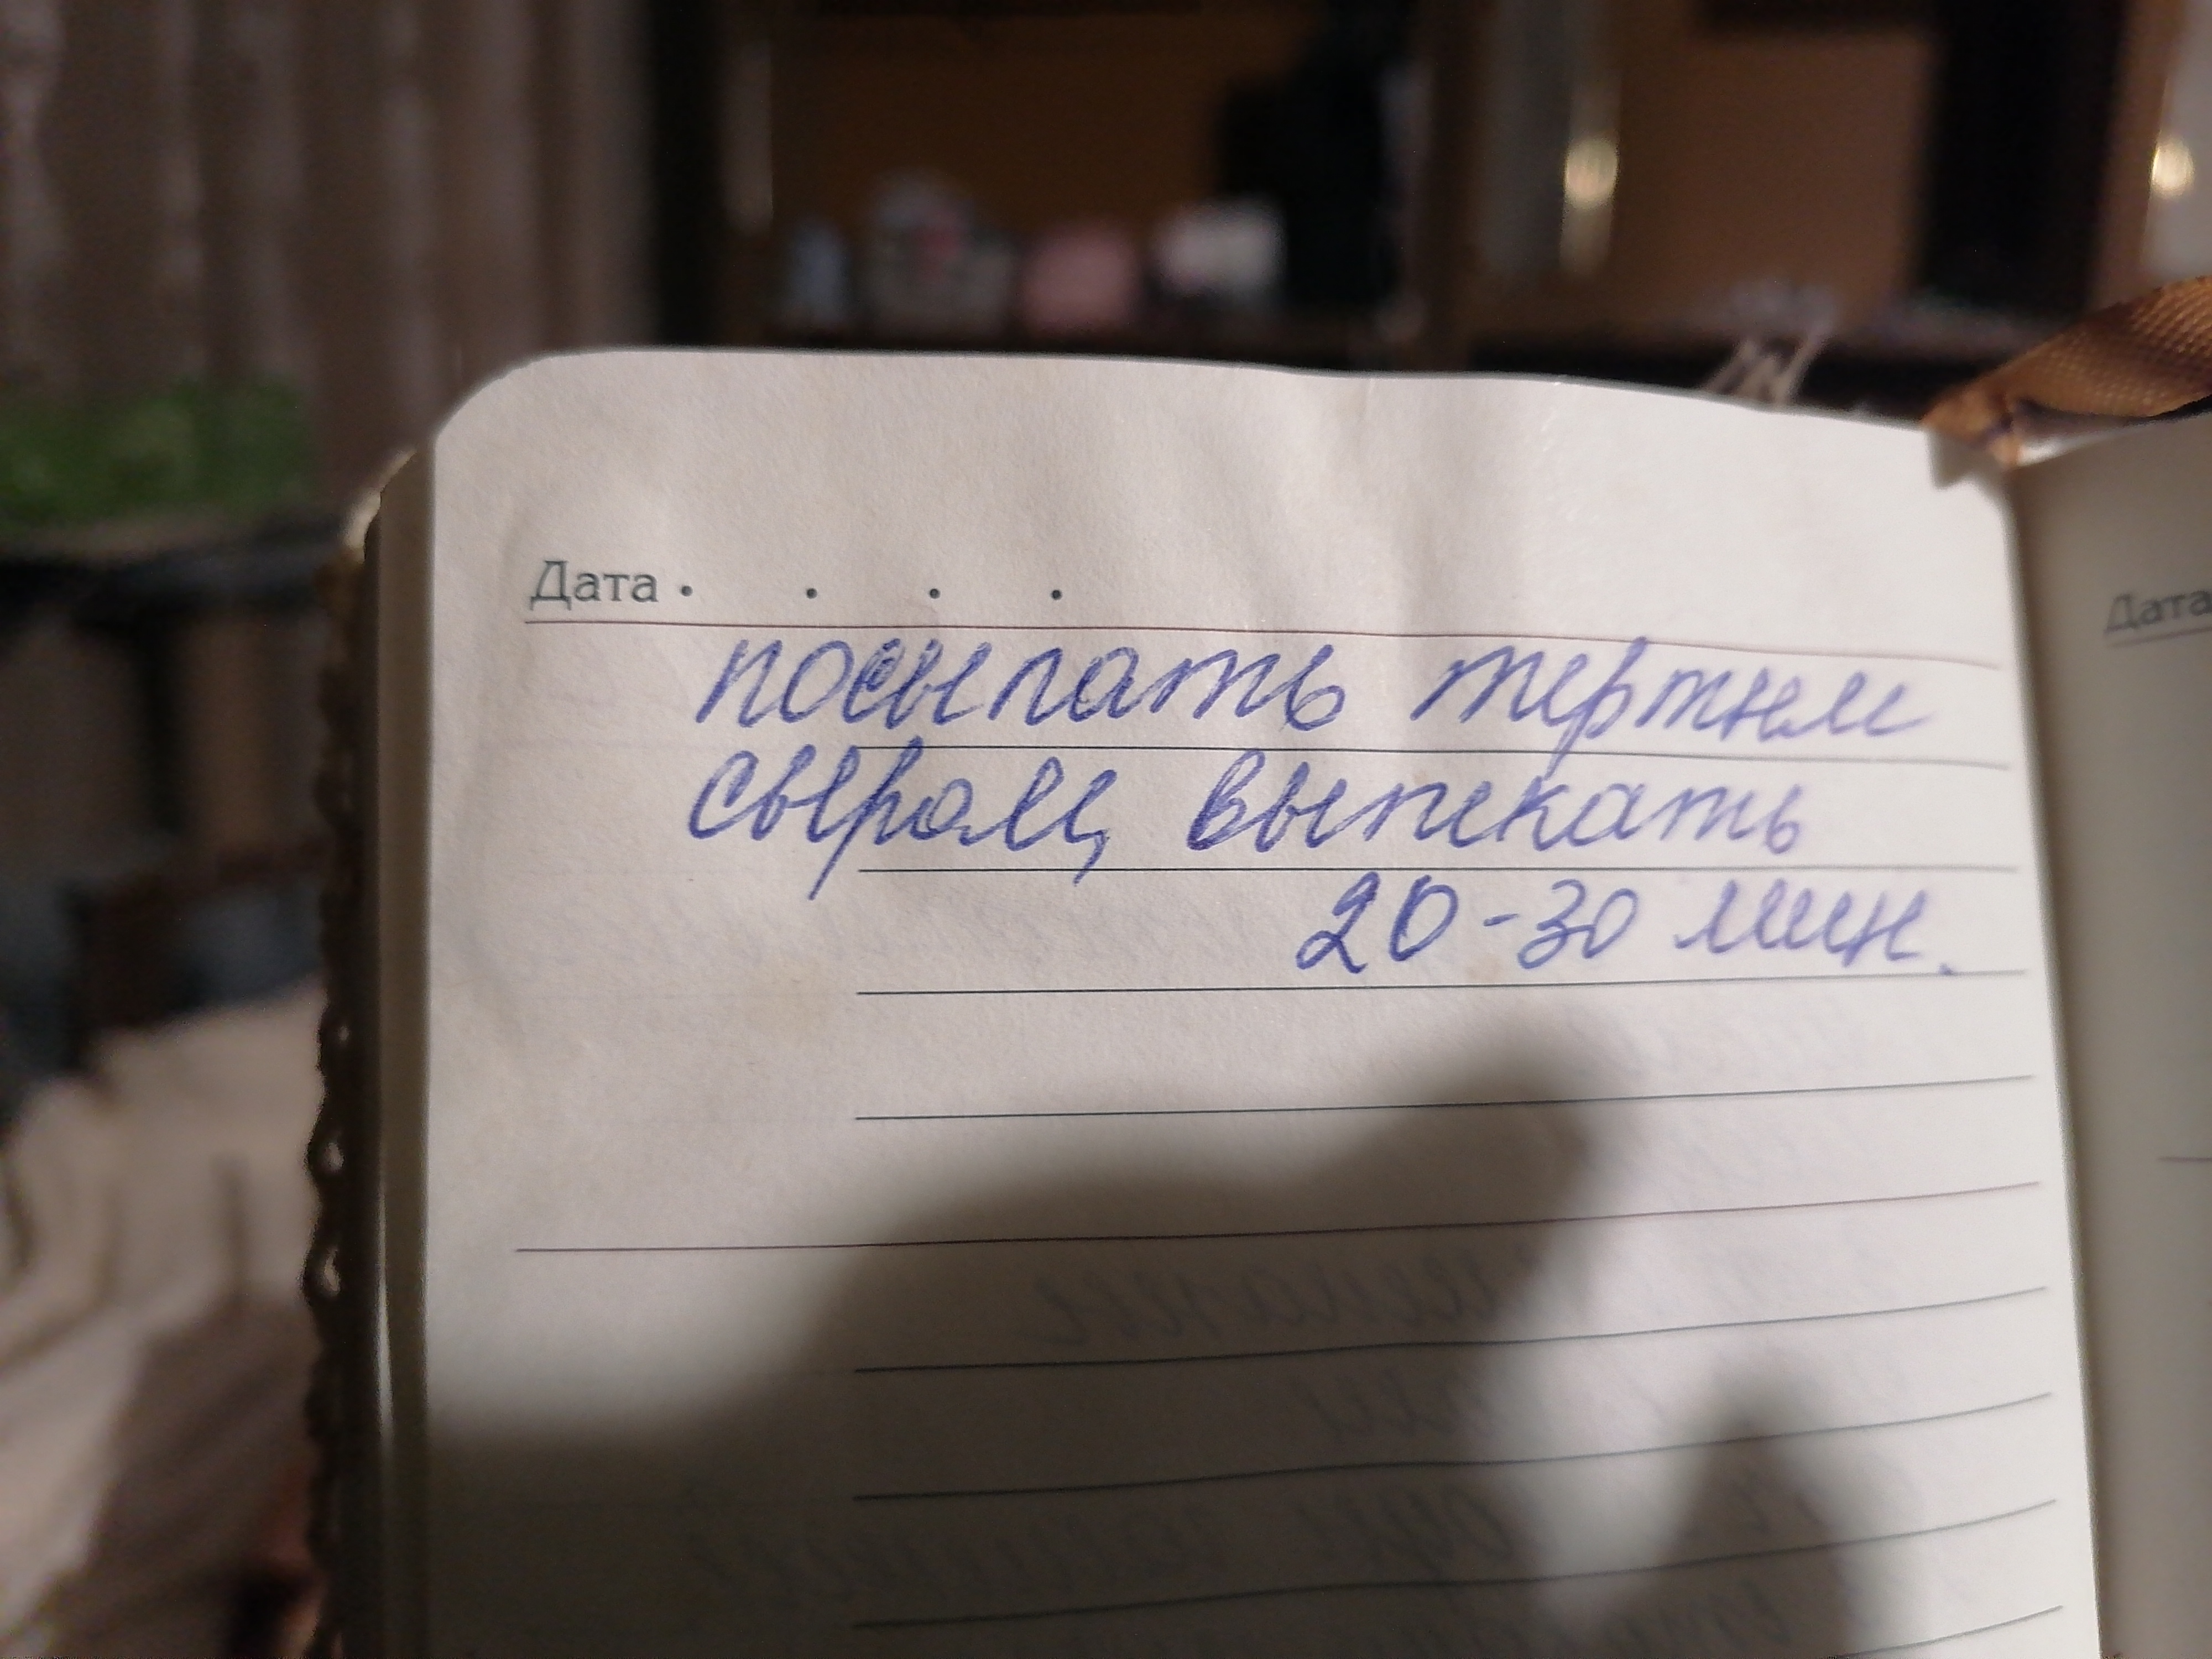 Дата . . . .
посыпать тертым
сыром, выпекать
20-30 мин.
Дата